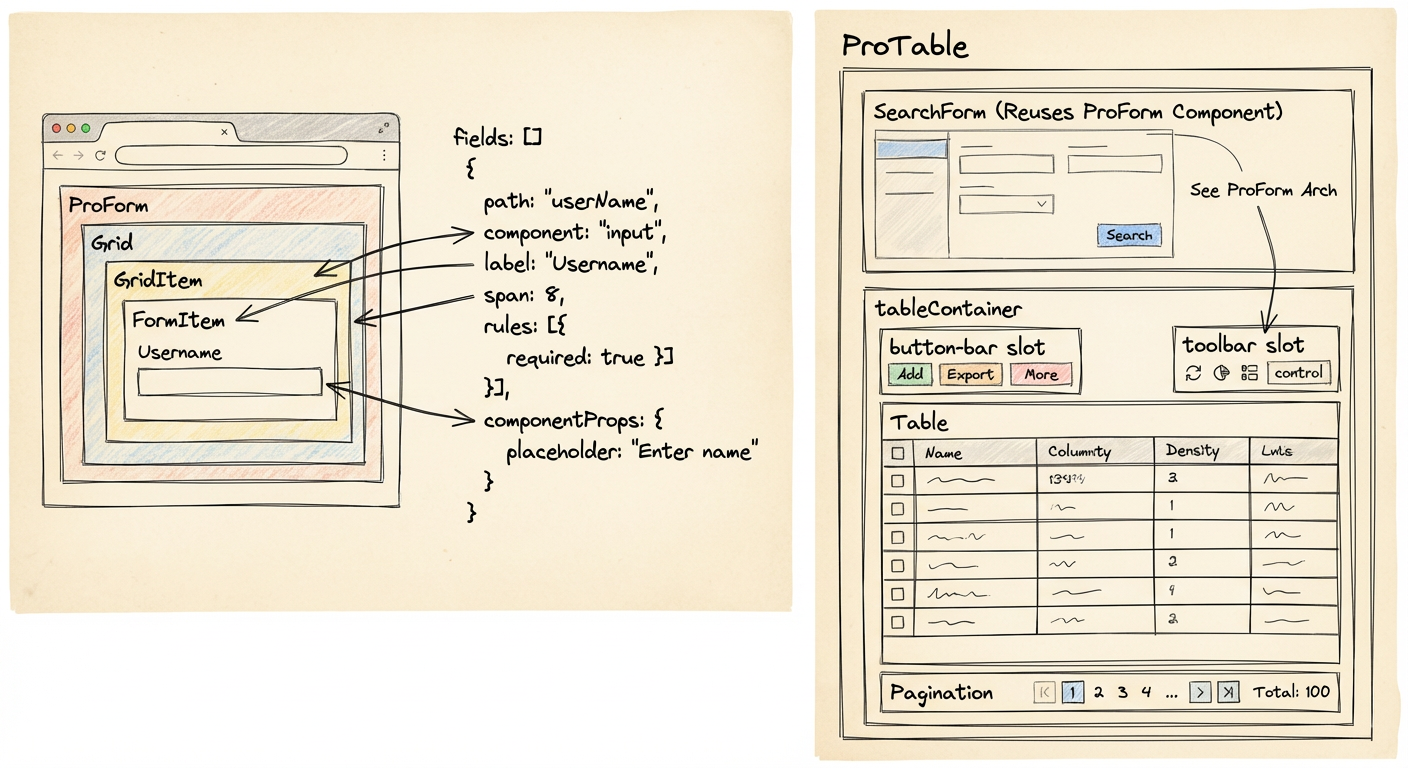 ProForm
Grid
GridItem
FormItem
Username
fields: []
{
path: "userName",
component: "input",
label: "Username",
span: 8,
rules: [{
required: true }]
}],
componentProps: {
placeholder: "Enter name"
}
}
ProTable
SearchForm (Reuses ProForm Component)
See ProForm Arch
Search
tableContainer
button-bar slot
Add Export More
toolbar slot
control
Table
Name Columnty Density
3
1
1
2
9
2
Pagination 1 2 3 4 ... Total: 100